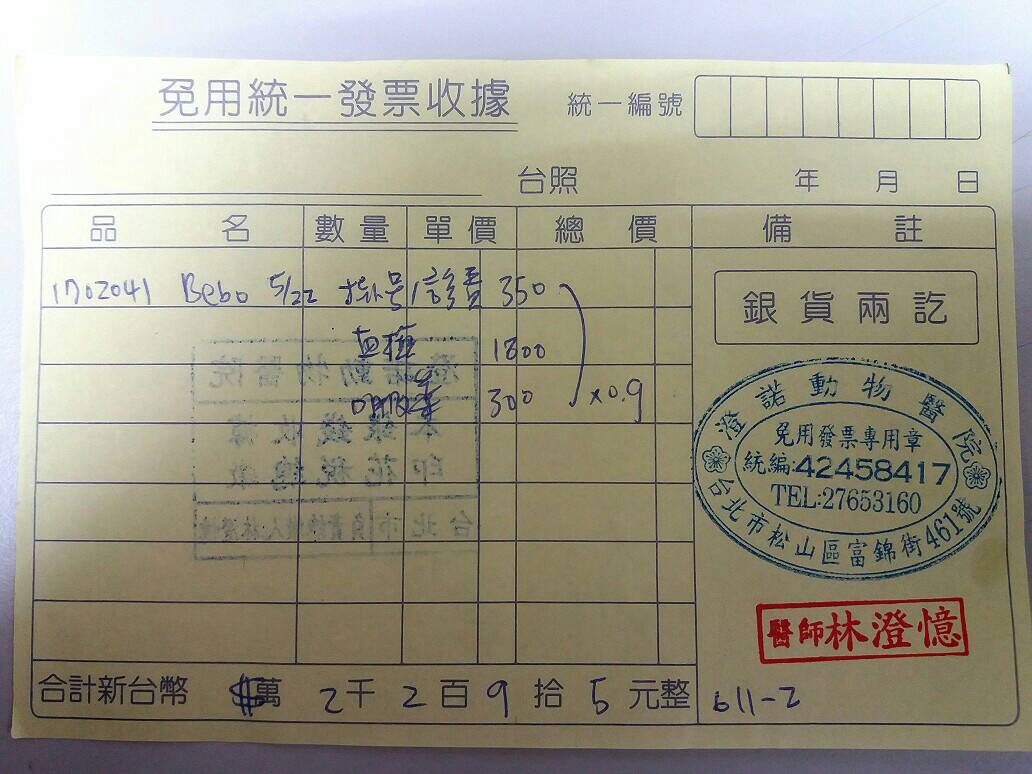 免用統一發票收據
統一編號
台照 年 月 日
品名 數量 單價 總價 備註
1702041 Bebo 5/22 掛号/診費 350
血檢 1800
口服藥 300
×0.9
銀貨兩訖
澄諾動物醫院
免用發票專用章
統編:42458417
TEL:27653160
台北市松山區富錦街461號
醫師林澄憶
澄諾動物醫院
本銀錢收據
印花稅總繳
台北市負責繳納人林澄憶
合計新台幣 $萬 2千2百9拾5元整
611-2